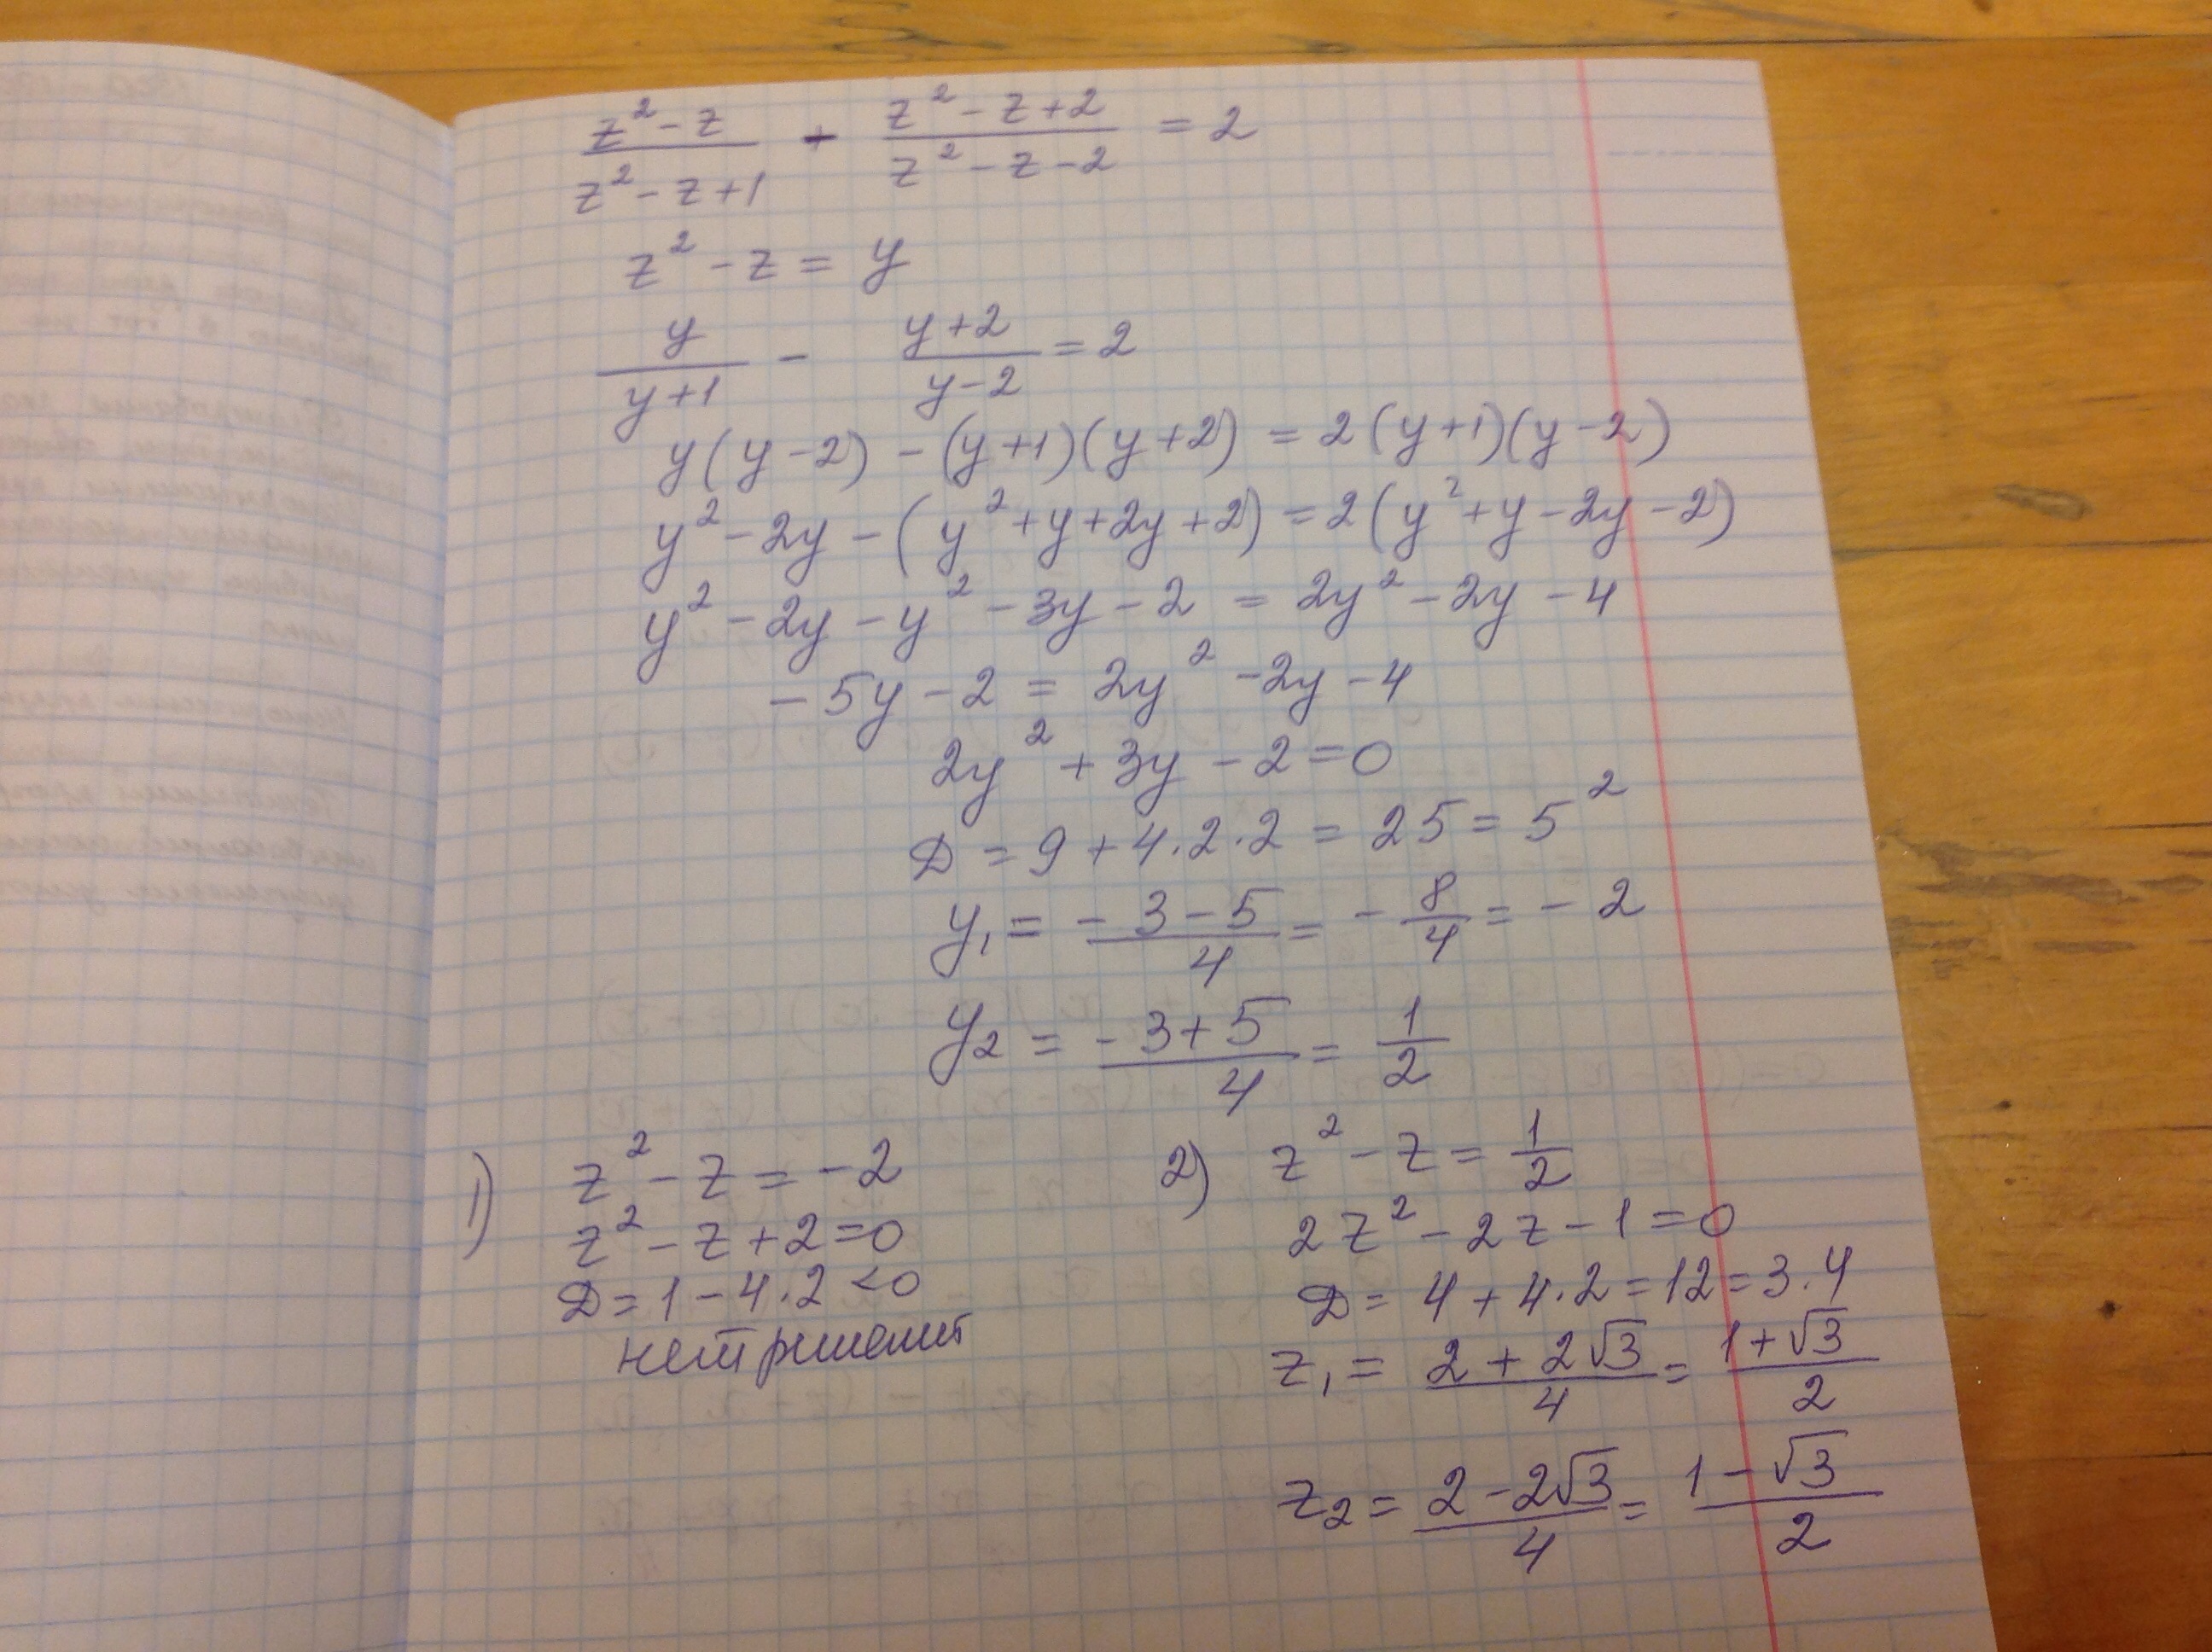 (z² - z)/(z² - z + 1) - (z² - z + 2)/(z² - z - 2) = 2
z² - z = y
y/(y+1) - (y+2)/(y-2) = 2
y(y-2) - (y+1)(y+2) = 2(y+1)(y-2)
y² - 2y - (y² + y + 2y + 2) = 2(y² + y - 2y - 2)
y² - 2y - y² - 3y - 2 = 2y² - 2y - 4
- 5y - 2 = 2y² - 2y - 4
2y² + 3y - 2 = 0
D = 9 + 4·2·2 = 25 = 5²
y₁ = (-3-5)/4 = -8/4 = -2
y₂ = (-3+5)/4 = 1/2
1) z² - z = -2
z² - z + 2 = 0
D = 1 - 4·2 < 0
нет решений
2) z² - z = 1/2
2z² - 2z - 1 = 0
D = 4 + 4·2 = 12 = 3·4
z₁ = (2 + 2√3)/4 = (1+√3)/2
z₂ = (2 - 2√3)/4 = (1-√3)/2